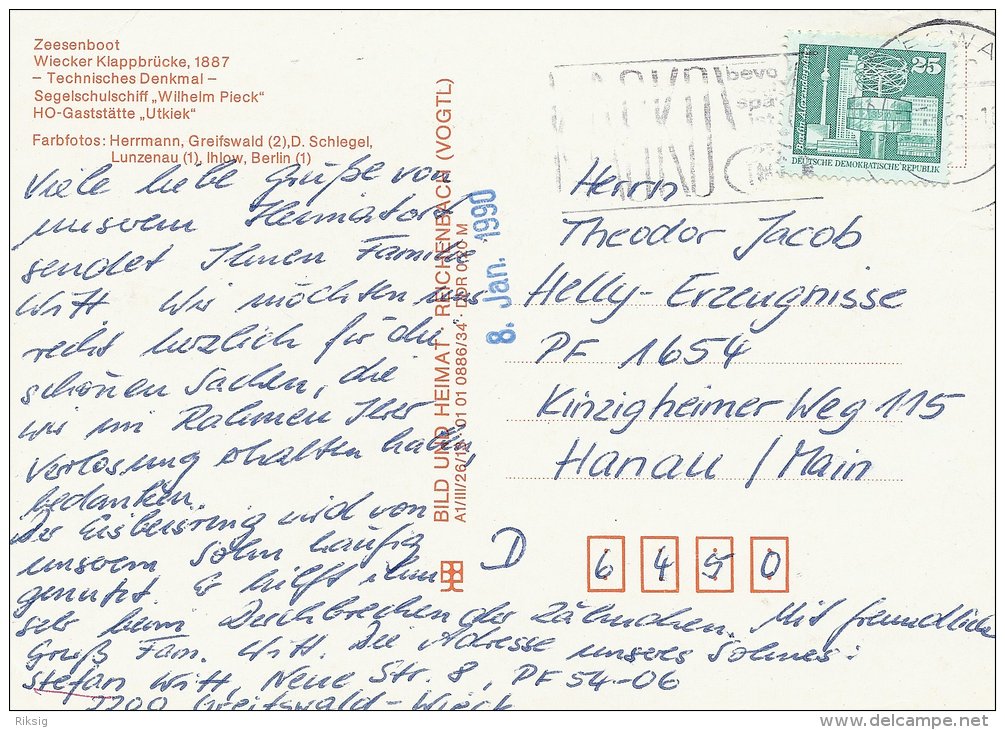 Zeesenboot
Wiecker Klappbrücke, 1887
– Technisches Denkmal –
Segelschulschiff „Wilhelm Pieck“
HO-Gaststätte „Utkiek“
Farbfotos: Herrmann, Greifswald (2), D. Schlegel,
Lunzenau (1), Ihlow, Berlin (1)
Viele liebe Grüße von
unserem Heimatort
sendet Ihnen Familie
Witt. Wir möchten uns
recht herzlich für die
schönen Sachen, die
wir im Rahmen Ihrer
Verlosung erhalten haben,
bedanken.
Der Eisbeisring wird von
unserem Sohn häufig
genutzt. Er hilft ihm
sehr beim Durchbrechen der Zähnchen. Mit freundlichem
Gruß Fam. Witt. Die Adresse unseres Sohnes:
Stefan Witt, Neue Str. 8, PF 54-06
2200 Greifswald-Wieck
BILD UND HEIMAT · REICHENBACH (VOGTL)
A1/III/26/13 01 01 0886/34 · DDR 0,20 M
8. Jan. 1990
bevo
25
Berlin-Alexanderplatz
DEUTSCHE DEMOKRATISCHE REPUBLIK
Herrn
Theodor Jacob
Helly-Erzeugnisse
PF 1654
Kinzigheimer Weg 115
Hanau / Main
D 6450
Riksig
delcampe.net